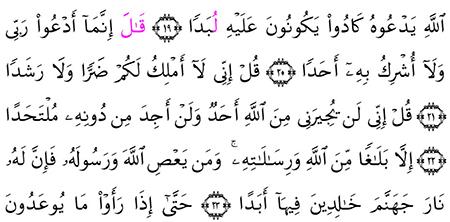 ٱللَّهِ يَدْعُوهُ كَادُوا۟ يَكُونُونَ عَلَيْهِ لُبَدًا ﴿١٩﴾ قَـٰلَ إِنَّمَآ أَدْعُوا۟ رَبِّى
وَلَآ أُشْرِكُ بِهِۦٓ أَحَدًا ﴿٢٠﴾ قُلْ إِنِّى لَآ أَمْلِكُ لَكُمْ ضَرًّا وَلَا رَشَدًا
﴿٢١﴾ قُلْ إِنِّى لَن يُجِيرَنِى مِنَ ٱللَّهِ أَحَدٌ وَلَنْ أَجِدَ مِن دُونِهِۦ مُلْتَحَدًا
﴿٢٢﴾ إِلَّا بَلَـٰغًا مِّنَ ٱللَّهِ وَرِسَـٰلَـٰتِهِۦ ۚ وَمَن يَعْصِ ٱللَّهَ وَرَسُولَهُۥ فَإِنَّ لَهُۥ
نَارَ جَهَنَّمَ خَـٰلِدِينَ فِيهَآ أَبَدًا ﴿٢٣﴾ حَتَّىٰٓ إِذَا رَأَوْا۟ مَا يُوعَدُونَ